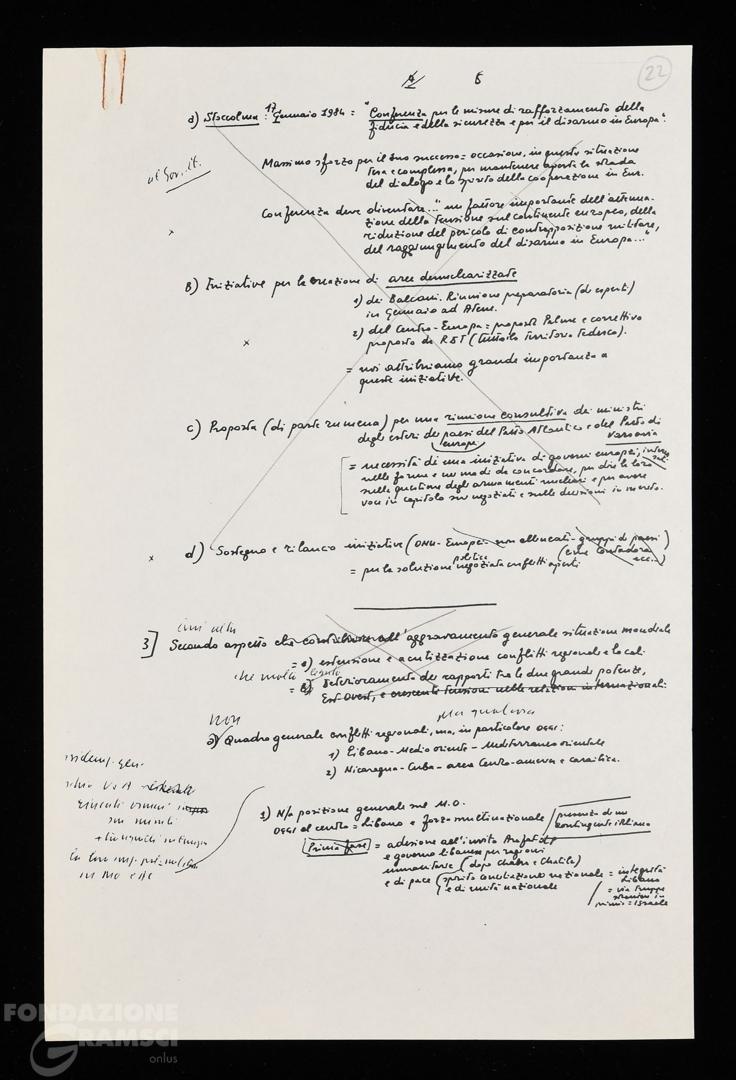 22
6
a) Stoccolma: 17 Gennaio 1984 = "Conferenza per le misure di rafforzamento della
fiducia e della sicurezza e per il disarmo in Europa".
al Gov. it.
Massimo sforzo per il suo successo = occasione, in questa situazione
tesa e complessa, per mantenere aperta la strada
del dialogo e lo spirito della cooperazione in Eur.
Conferenza deve diventare..." un fattore importante dell'attenua-
zione della tensione sul continente europeo, della
riduzione del pericolo di contrapposizione militare,
del raggiungimento del disarmo in Europa..."
x
B) Iniziative per la creazione di aree denuclearizzate
1) dei Balcani. Riunione preparatoria (di esperti)
in Gennaio ad Atene.
2) del Centro-Europa = proposta Palme e correttivo
proposto da RDT (tutto il territorio tedesco).
x
= noi attribuiamo grande importanza a
queste iniziative.
c) Proposta (di parte rumena) per una riunione consultiva dei ministri
degli esteri dei paesi del Patto Atlantico e del Patto di
europei Varsavia
= necessità di una iniziativa di governi europei,
nelle forme e nei modi da concordare, per dire la loro
sulla questione degli armamenti nucleari e per avere
voce in capitolo su negoziati e sulle decisioni in merito.
x
d) Sostegno e rilancio iniziative (ONU - Europei - non allineati - gruppi di paesi)
(come Contadora
ecc..)
= per la soluzione politica negoziata conflitti aperti
3] Secondo aspetto che contribuisce all'aggravamento generale situazione mondiale
= a) estensione e acutizzazione conflitti regionali e locali
che molto legato
= B) deterioramento dei rapporti tra le due grandi potenze,
Est Ovest, e crescente tensione nelle relazioni internazionali
non
ma qualcosa
a) Quadro generale conflitti regionali, ma, in particolare oggi:
1) Libano - Medio oriente - Mediterraneo orientale
2) Nicaragua - Cuba - area Centro-america e caraibica.
1) N/a posizione generale sul M.O.
oggi al centro = Libano e forza multinazionale / presenza di un
contingente italiano
Prima fase = adesione all'invito Arafat
e governo libanese per ragioni
umanitarie (dopo Chabra e Chatila)
e di pace (spirito conciliazione nazionale
e di unità nazionale
= integrità
Libano
= via truppe
straniere in
primis = Israele
in MO e AC
FONDAZIONE
GRAMSCI
onlus